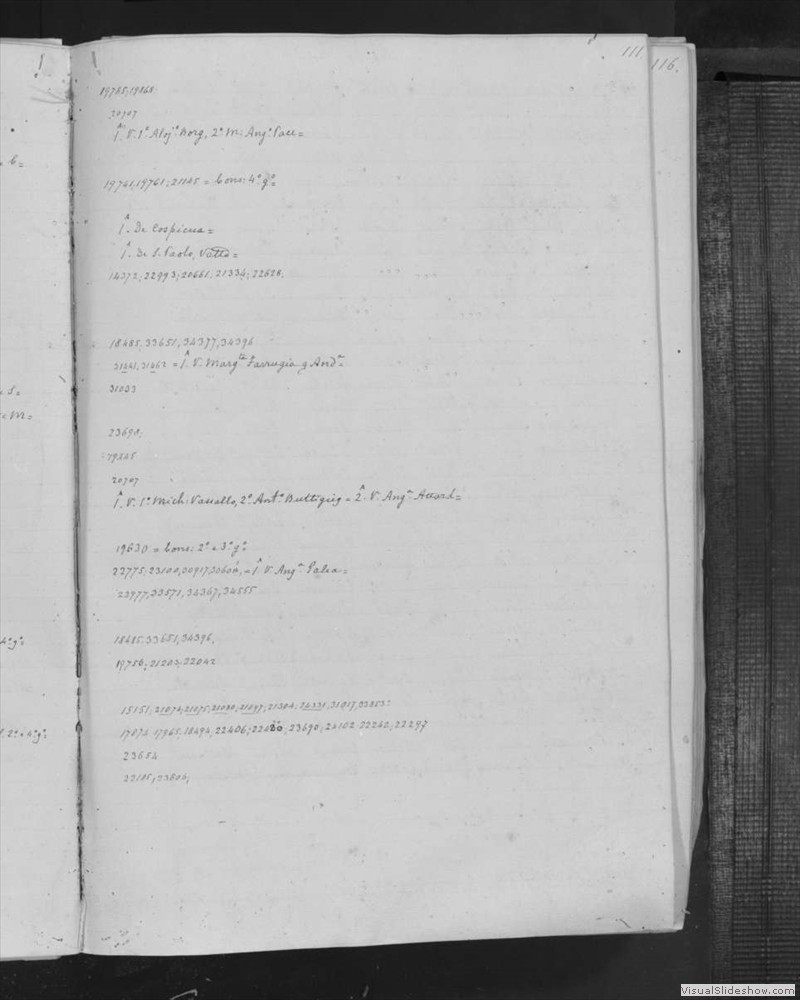 111.
116.
19785,19868
20707
Â. V. 1º Aloj. Borg, 2º M. Angª Pace=
19741,19761,21145 = Cons: 4º gº
Â. De Cospicua=
Â. De S. Paolo, Vatto=
14372;22993;20661;21334;22628.
18485,33651,34377,34396
31241,31462 = Â. V. Margta Farrugia q Andª=
31033
23690,
19245
20707
Â. V. 1º Mich: Vassallo, 2º Antº Buttigieg = 2. V. Angª Attard=
19630 = Cons: 2º = 3º gº
22775,23100,30917,30600, = Â. V. Angª Galea=
23977,33571,34367,34555
18485,33651,34396,
19756;21203;22042
15151;21074,21075,21080,21097;21304;24331,31017,33853:
17072,17965,18494,22406;22420;23690,24102,22242,22297
23654
22185;23804,
b=
S=
M=
4º gº
2º = 4º gº
VisualSlideshow.com